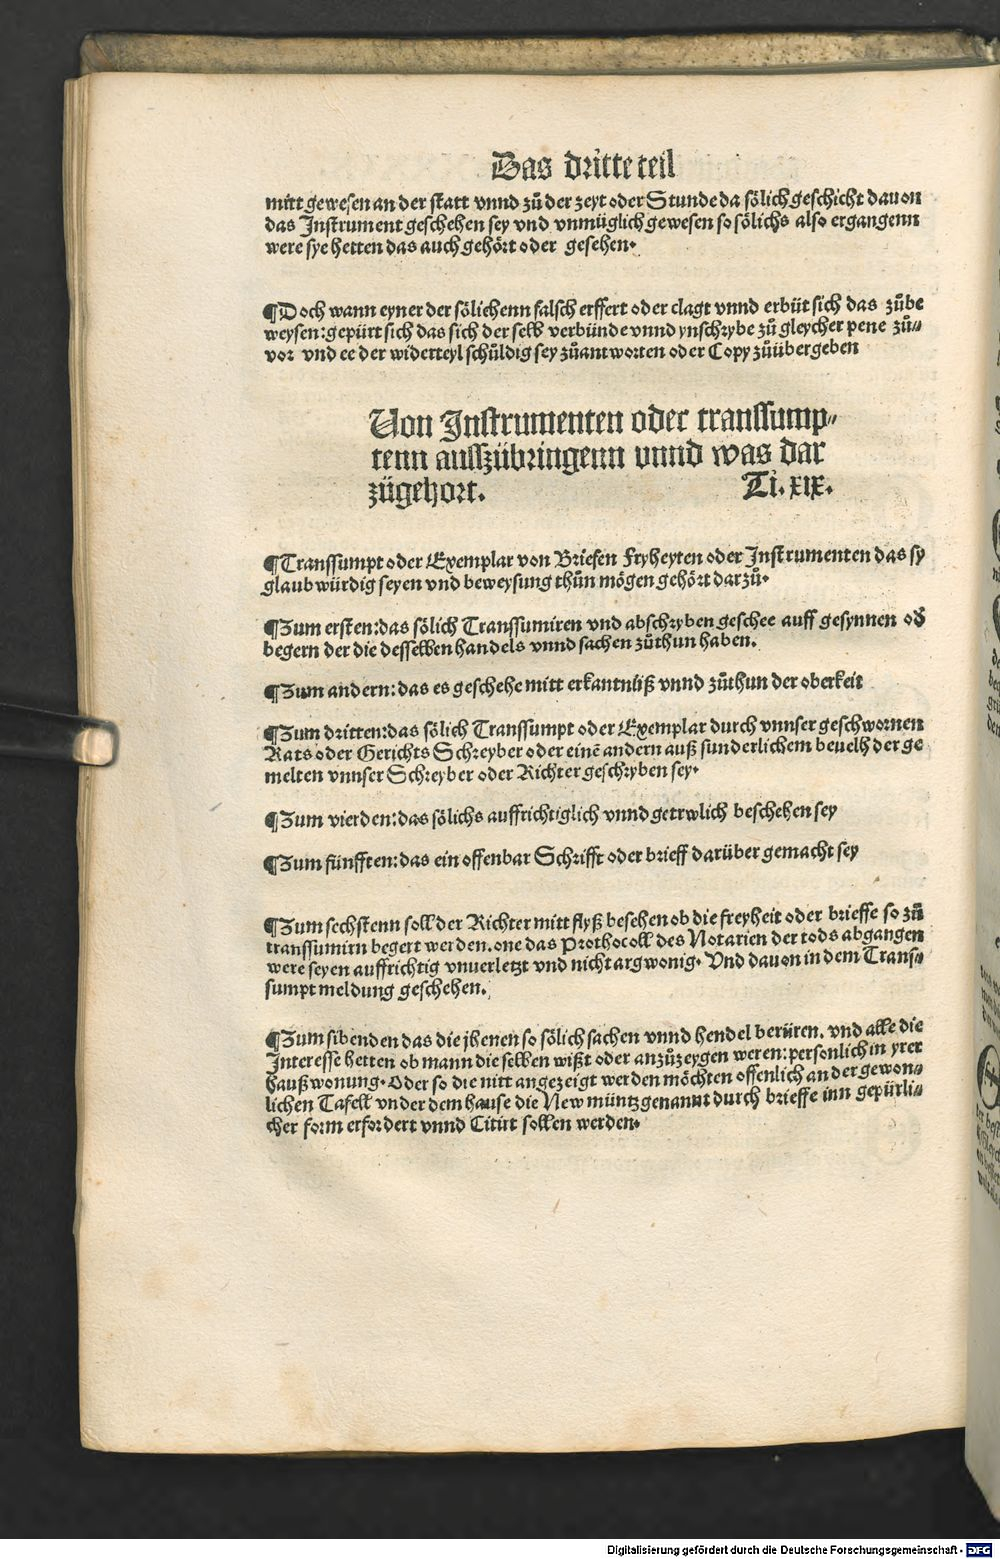 Das dritte teil
mitt gewesen an der statt vnnd zů der zeyt oder Stunde da sölich geschicht dauon
das Instrument geschehen sey vnd vnmüglich gewesen so sölichs also ergangenn
were sye hetten das auch gehört oder gesehen.
¶Doch wann eyner der sölichenn falsch erffert oder clagt vnnd erbüt sich das zůbe
weysen: gepürt sich das sich der selb verbünde vnnd ynschrybe zů gleycher pene zů⸗
vor vnd ee der widerteyl schüldig sey zůantworten oder Copy zůübergeben
Von Instrumenten oder transsump⸗
tenn ausszübringenn vnnd was dar
zügehort. Ti. xix.
¶Transsumpt oder Exemplar von Briefen Fryheyten oder Instrumenten das sy
glaubwürdig seyen vnd beweysung thůn mögen gehört darzů.
¶Zum ersten: das sölich Transsumiren vnd abschryben geschee auff gesynnen od̕
begern der die desselben handels vnnd sachen zůthun haben.
¶Zum andern: das es geschehe mitt erkantnüß vnnd zůthun der oberkeit
¶Zum dritten: das sölich Transsumpt oder Exemplar durch vnnser geschwornen
Rats oder Gerichts Schreyber oder einē andern auß sunderlichem beuelh der ge
melten vnnser Schreyber oder Richter geschryben sey.
¶Zum vierden: das sölichs auffrichtiglich vnnd getrwlich beschehen sey
¶Zum fünfften: das ein offenbar Schrifft oder brieff darüber gemacht sey
¶Zum sechstenn soll der Richter mitt flyß besehen ob die freyheit oder brieffe so zů
transsumirn begert werden. one das Prothocoll des Notarien der tods abgangen
were seyen auffrichtig vnuerletzt vnd nicht argwonig. Vnd dauon in dem Trans⸗
sumpt meldung geschehen.
¶Zum sibenden das die jhenen so sölich sachen vnnd hendel berüren. vnd alle die
Interesse hetten ob mann die selben wißt oder anzůzeygen weren: personlich in yrer
haußwonung. Oder so die nitt angezeigt werden möchten offenlich an der gewon⸗
lichen Tafell vnder dem hause die New müntz genannt durch brieffe inn gepürli⸗
cher form erfordert vnnd Citirt sollen werden.
Digitalisierung gefördert durch die Deutsche Forschungsgemeinschaft - DFG